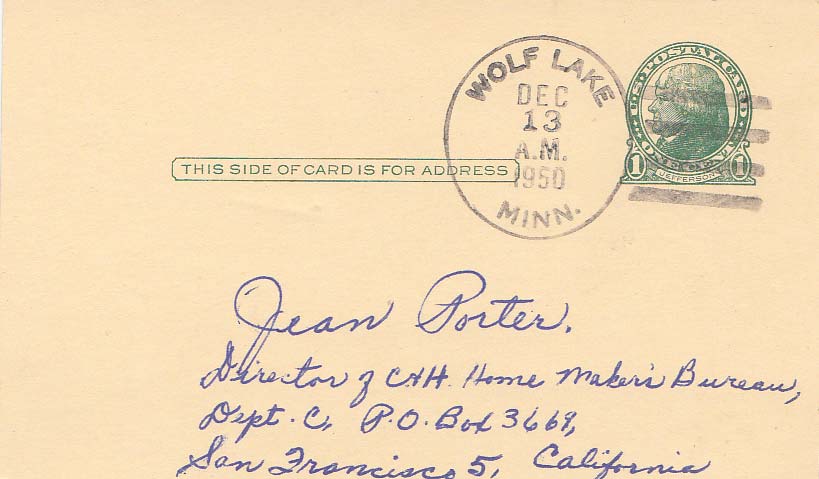 WOLF LAKE
DEC
13
A.M.
1950
MINN.
1 JEFFERSON 1
THIS SIDE OF CARD IS FOR ADDRESS
Jean Porter.
Director of C&H. Home Maker's Bureau,
Dept. C, P.O. Box 3669,
San Francisco 5, California